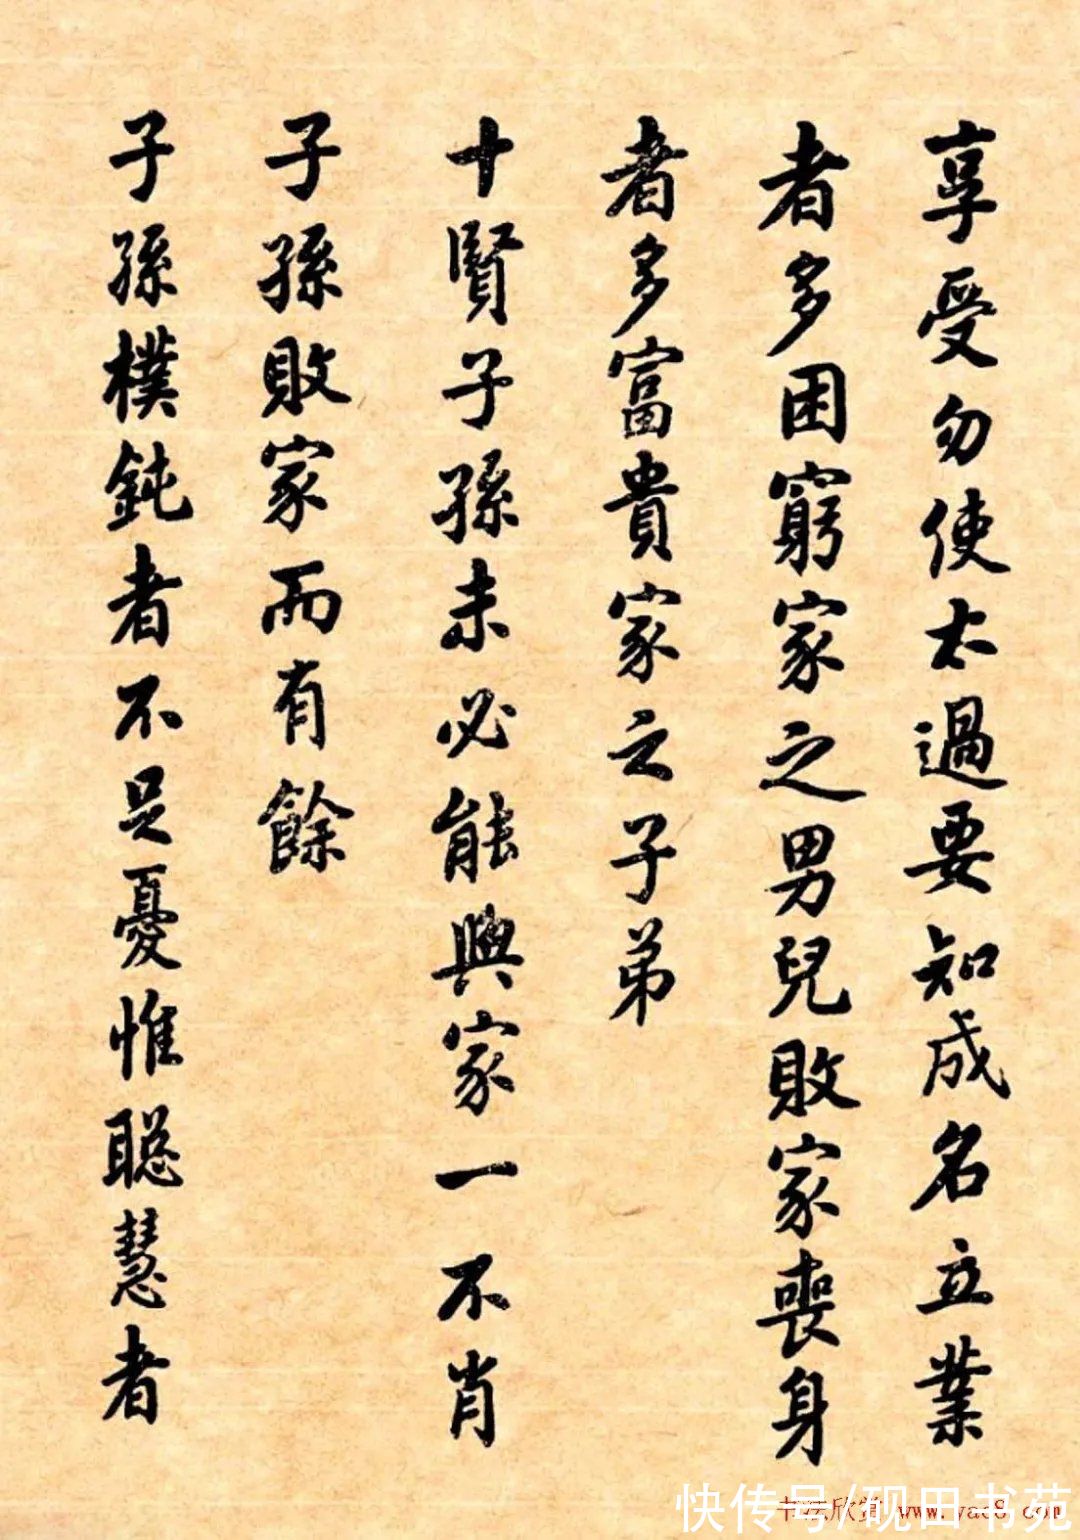 享受勿使太過要知成名立業
者多困窮家之男兒敗家喪身
者多富貴家之子弟
十賢子孫未必能興家一不肖
子孫敗家而有餘
子孫樸鈍者不足憂惟聰慧者
书法欣赏 www.yac8.com
快传号/砚田书苑